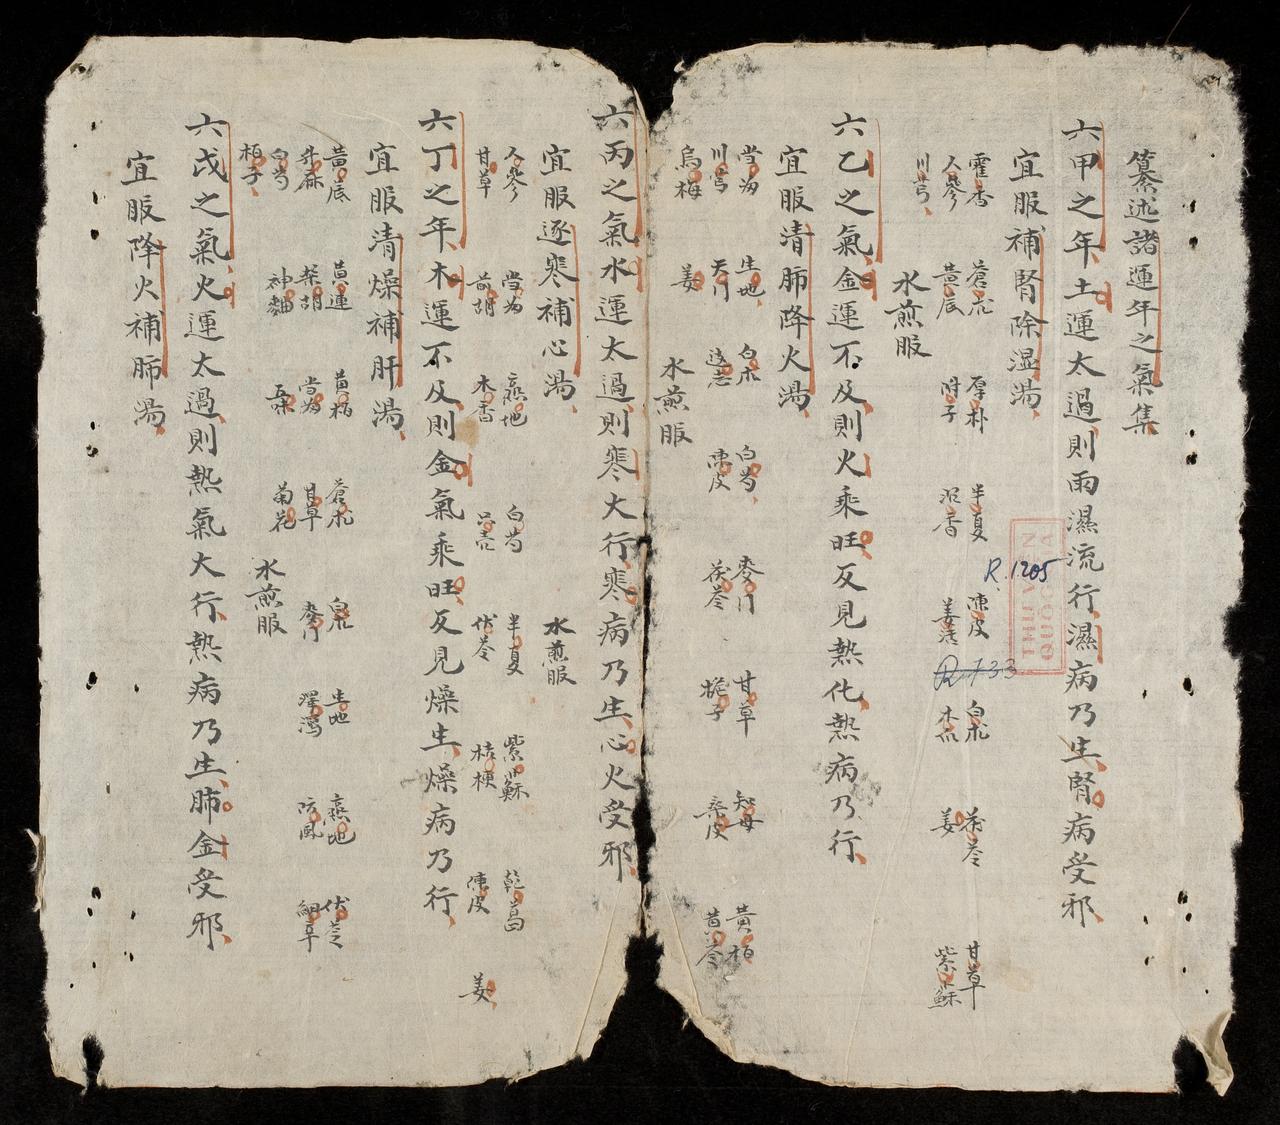 纂述諸運年之氣集
六甲之年土運太過則雨濕流行濕病乃生腎病受邪
宜服補腎除湿湯
霍香 蒼朮 厚朴 半夏 陳皮 白朮 茯苓 甘草
人參 黃辰 附子 沉香 姜活 木瓜 姜 紫蘇
川芎 水煎服
六乙之氣金運不及則火乘旺反見熱化熱病乃行
宜服清肺降火湯
當歸 生地 白朮 白芍 麥門 甘草 知母 黃栢
川芎 天門 遠志 陳皮 茯苓 梔子 桑皮 黃芩
烏梅 姜 水煎服
六丙之氣水運太過則寒大行寒病乃生心火受邪
宜服逐寒補心湯 水煎服
人參 當歸 熟地 白芍 半夏 紫蘇 乾葛
甘草 前胡 木香 只壳 伏苓 桔梗 陳皮 姜
六丁之年木運不及則金氣乘旺反見燥生燥病乃行
宜服清燥補肝湯
黃底 黃連 黃栢 蒼朮 白朮 生地 熟地 伏苓
升麻 柴胡 當歸 甘草 麥門 澤瀉 防風 細辛
白芍 神麯 菊花 水煎服
栢子
六戊之氣火運太過則熱氣大行熱病乃生肺金受邪
宜服降火補肺湯
R.1205
R 733
THU VIEN
QUOC GIA